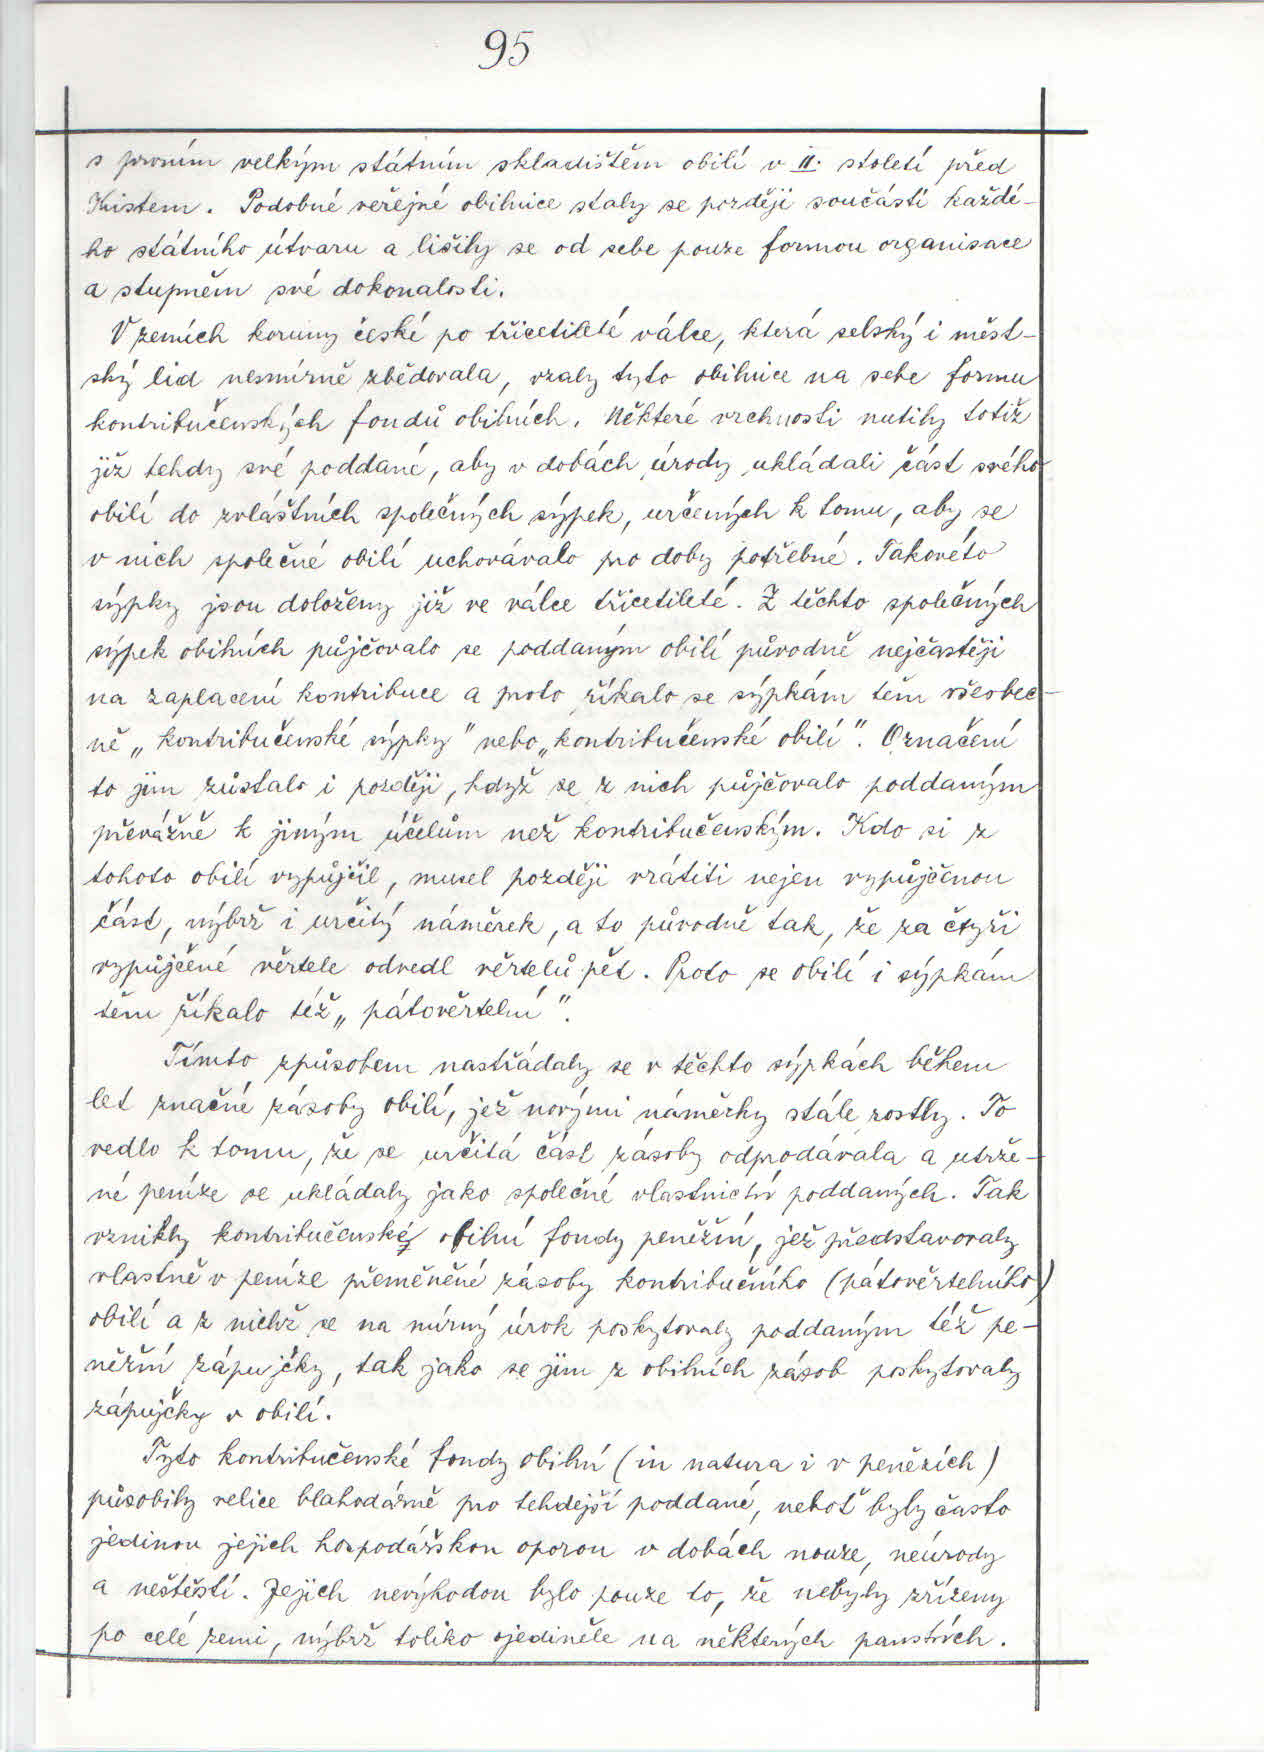 95
s prvním velkým státním skladištěm obilí v II. století před
Kristem. Podobné veřejné obilnice staly se později součástí každé-
ho státního útvaru a lišily se od sebe pouze formou organisace
a stupněm své dokonalosti.
V zemích koruny české po třicetileté válce, která selský i měst-
ský lid nesmírně zbědovala, vzaly tyto obilnice na sebe formu
kontribučenských fondů obilních. Některé vrchnosti nutily totiž
již tehdy své poddané, aby v dobách úrody ukládali část svého
obilí do zvláštních společných sýpek, určených k tomu, aby se
v nich společné obilí uchovávalo pro doby potřebné. Takovéto
sýpky jsou doloženy již ve válce třicetileté. Z těchto společných
sýpek obilních půjčovalo se poddaným obilí původně nejčastěji
na zaplacení kontribuce a proto říkalo se sýpkám těm všeobec-
ně „kontribučenské sýpky" nebo „kontribučenské obilí". Označení
to jim zůstalo i později, když se z nich půjčovalo poddaným
převážně k jiným účelům než kontribučenským. Kdo si z
tohoto obilí vypůjčil, musel později vrátiti nejen vypůjčenou
část, nýbrž i určitý náměrek, a to původně tak, že za čtyři
vypůjčené věrtele odvedl věrtelů pět. Proto se obilí i sýpkám
těm říkalo též „pátověrtelní".
Tímto způsobem nastřádaly se v těchto sýpkách během
let značné zásoby obilí, jež novými náměrky stále rostly. To
vedlo k tomu, že se určitá část zásoby odprodávala a utrže-
né peníze se ukládaly jako společné vlastnictví poddaných. Tak
vznikly kontribučenské obilní fondy peněžní, jež představovaly
vlastně v peníze přeměněné zásoby kontribučního (pátověrtelního)
obilí a z nichž se na mírný úrok poskytovaly poddaným též pe-
něžní zápujčky, tak jako se jim z obilních zásob poskytovaly
zápujčky v obilí.
Tyto kontribučenské fondy obilní (in natura i v penězích)
působily velice blahodárně pro tehdejší poddané, neboť byly často
jedinou jejich hospodářskou oporou v dobách nouze, neúrody
a neštěstí. Jejich nevýhodou bylo pouze to, že nebyly zřízeny
po celé zemi, nýbrž toliko ojediněle na některých panstvích.